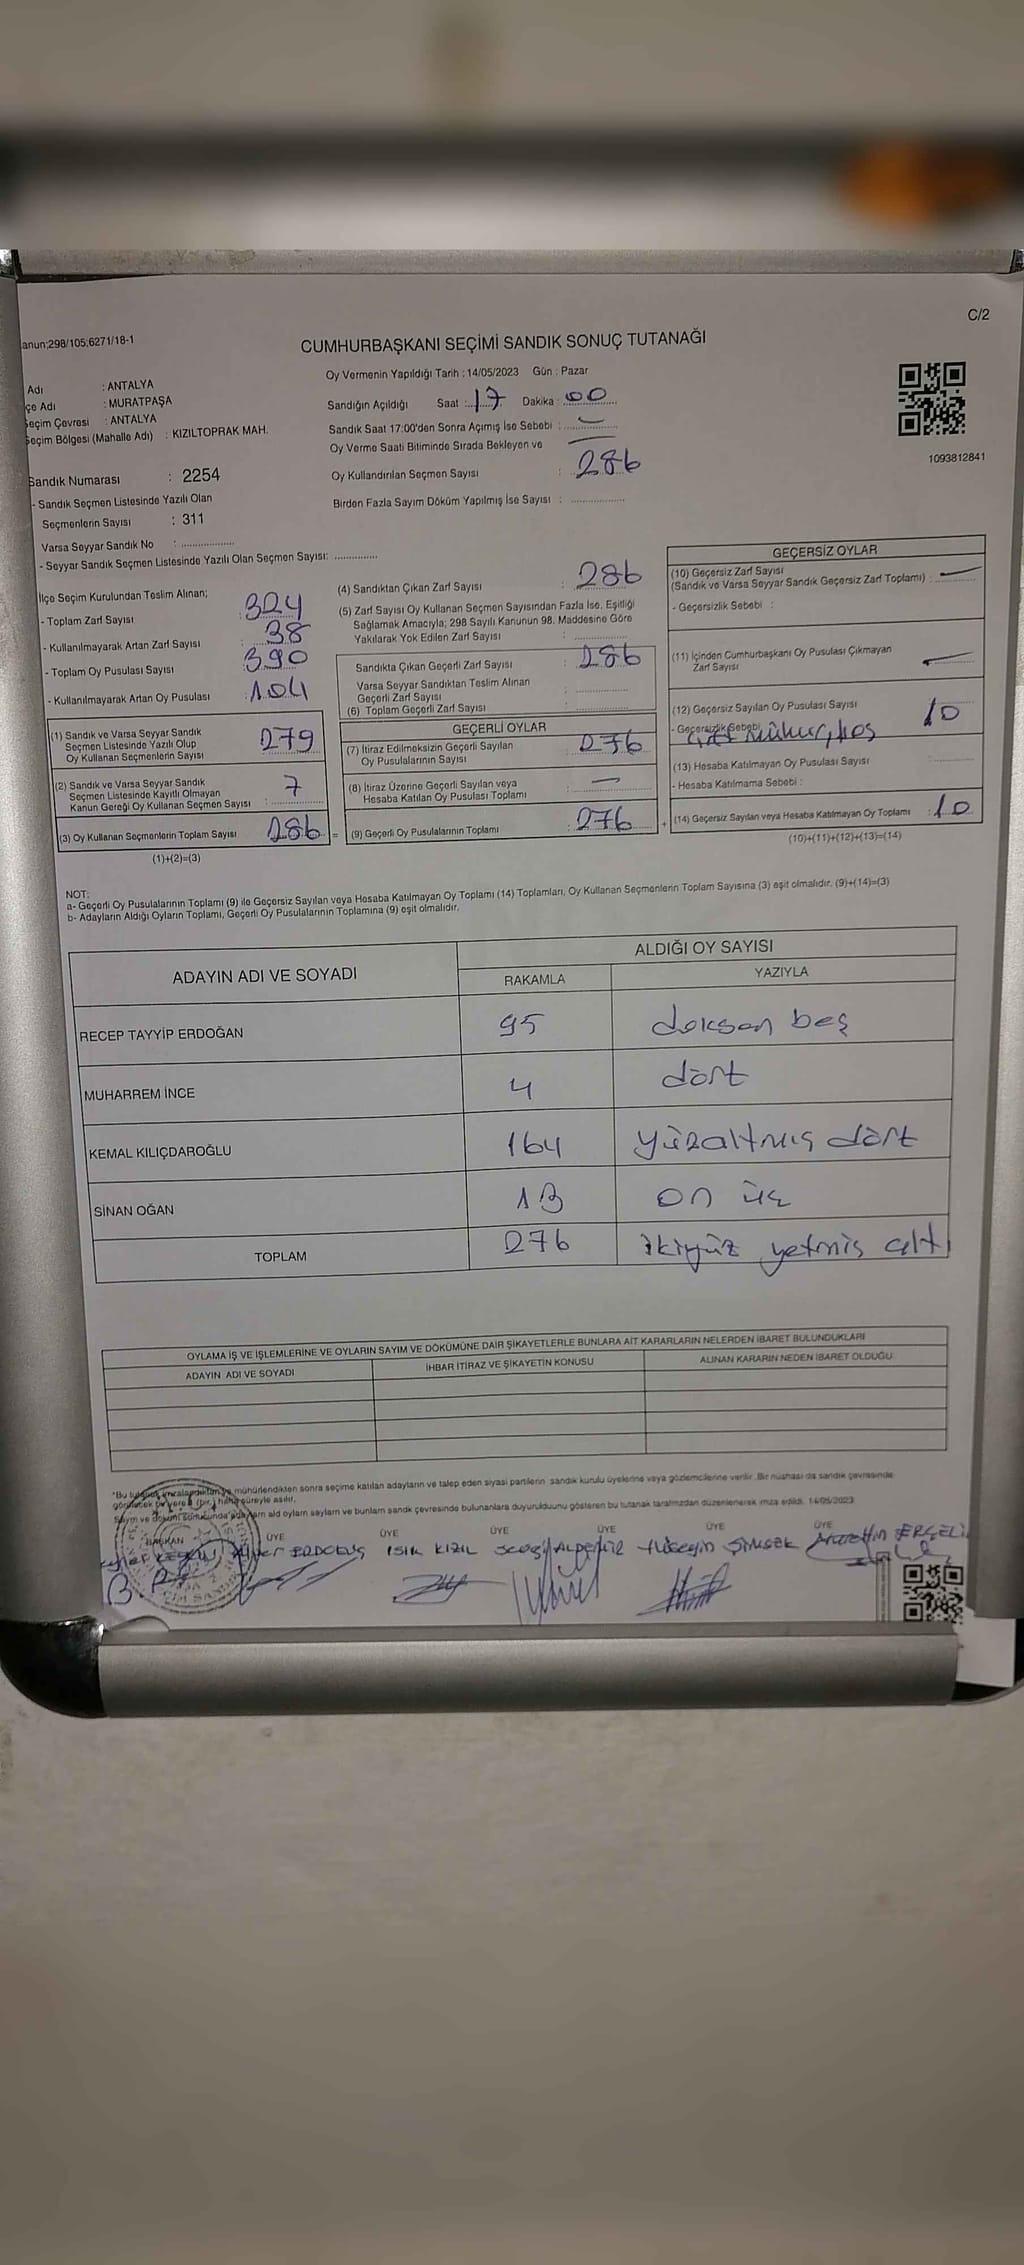 C/2
anun;298/105;6271/18-1
CUMHURBAŞKANI SEÇİMİ SANDIK SONUÇ TUTANAĞI
Adı : ANTALYA
çe Adı : MURATPAŞA
Seçim Çevresi : ANTALYA
Seçim Bölgesi (Mahalle Adı) : KIZILTOPRAK MAH.
Oy Vermenin Yapıldığı Tarih : 14/05/2023 Gün : Pazar
Sandığın Açıldığı Saat : 17 Dakika : 00
Sandık Saat 17:00'den Sonra Açımış İse Sebebi :
Oy Verme Saati Bitiminde Sırada Bekleyen ve
Oy Kullandırılan Seçmen Sayısı : 286
Birden Fazla Sayım Döküm Yapılmış İse Sayısı :
1093812841
Sandık Numarası : 2254
- Sandık Seçmen Listesinde Yazılı Olan
Seçmenlerin Sayısı : 311
Varsa Seyyar Sandık No :
- Seyyar Sandık Seçmen Listesinde Yazılı Olan Seçmen Sayısı:
İlçe Seçim Kurulundan Teslim Alınan;
- Toplam Zarf Sayısı : 324
- Kullanılmayarak Artan Zarf Sayısı : 38
- Toplam Oy Pusulası Sayısı : 390
- Kullanılmayarak Artan Oy Pusulası : 104
(1) Sandık ve Varsa Seyyar Sandık
Seçmen Listesinde Yazılı Olup
Oy Kullanan Seçmenlerin Sayısı : 279
(2) Sandık ve Varsa Seyyar Sandık
Seçmen Listesinde Kayıtlı Olmayan
Kanun Gereği Oy Kullanan Seçmen Sayısı : 7
(3) Oy Kullanan Seçmenlerin Toplam Sayısı 286 =
(1)+(2)=(3)
(4) Sandıktan Çıkan Zarf Sayısı : 286
(5) Zarf Sayısı Oy Kullanan Seçmen Sayısından Fazla İse, Eşitliği
Sağlamak Amacıyla; 298 Sayılı Kanunun 98. Maddesine Göre
Yakılarak Yok Edilen Zarf Sayısı :
Sandıkta Çıkan Geçerli Zarf Sayısı : 286
Varsa Seyyar Sandıktan Teslim Alınan
Geçerli Zarf Sayısı :
(6) Toplam Geçerli Zarf Sayısı :
GEÇERLİ OYLAR
(7) İtiraz Edilmeksizin Geçerli Sayılan
Oy Pusulalarının Sayısı : 276
(8) İtiraz Üzerine Geçerli Sayılan veya
Hesaba Katılan Oy Pusulası Toplamı : —
(9) Geçerli Oy Pusulalarının Toplamı : 276 +
GEÇERSİZ OYLAR
(10) Geçersiz Zarf Sayısı
(Sandık ve Varsa Seyyar Sandık Geçersiz Zarf Toplamı) : —
- Geçersizlik Sebebi :
(11) İçinden Cumhurbaşkanı Oy Pusulası Çıkmayan
Zarf Sayısı : —
(12) Geçersiz Sayılan Oy Pusulası Sayısı 10
- Geçersizlik Sebebi
(13) Hesaba Katılmayan Oy Pusulası Sayısı :
- Hesaba Katılmama Sebebi :
(14) Geçersiz Sayılan veya Hesaba Katılmayan Oy Toplamı : 10
(10)+(11)+(12)+(13)=(14)
NOT:
a- Geçerli Oy Pusulalarının Toplamı (9) ile Geçersiz Sayılan veya Hesaba Katılmayan Oy Toplamı (14) Toplamları, Oy Kullanan Seçmenlerin Toplam Sayısına (3) eşit olmalıdır. (9)+(14)=(3)
b- Adayların Aldığı Oyların Toplamı, Geçerli Oy Pusulalarının Toplamına (9) eşit olmalıdır.
ADAYIN ADI VE SOYADI ALDIĞI OY SAYISI
RAKAMLA YAZIYLA
RECEP TAYYİP ERDOĞAN 95 doksan beş
MUHARREM İNCE 4 dört
KEMAL KILIÇDAROĞLU 164 yüzaltmış dört
SİNAN OĞAN 13 on üç
TOPLAM 276 ikiyüz yetmiş altı
OYLAMA İŞ VE İŞLEMLERİNE VE OYLARIN SAYIM VE DÖKÜMÜNE DAİR ŞİKAYETLERLE BUNLARA AİT KARARLARIN NELERDEN İBARET BULUNDUKLARI
ADAYIN ADI VE SOYADI İHBAR İTİRAZ VE ŞİKAYETİN KONUSU ALINAN KARARIN NEDEN İBARET OLDUĞU
*Bu tutanak imzalandıktan ve mühürlendikten sonra seçime katılan adayların ve talep eden siyasi partilerin sandık kurulu üyelerine veya gözlemcilerine verilir. Bir nüshası da sandık çevresinde
görülecek bir yere (bir) hafta süreyle asılır.
Sayım ve döküm sonucunda adayların ald oyların sayıların ve bunların sandık çevresinde bulunanlara duyurulduunu gösteren bu tutanak tarafımızdan düzenlenerek imza edildi. 14/05/2023
BAŞKAN ÜYE ÜYE ÜYE ÜYE ÜYE ÜYE
IŞIK KIZIL Hüseyin ŞİMŞEK